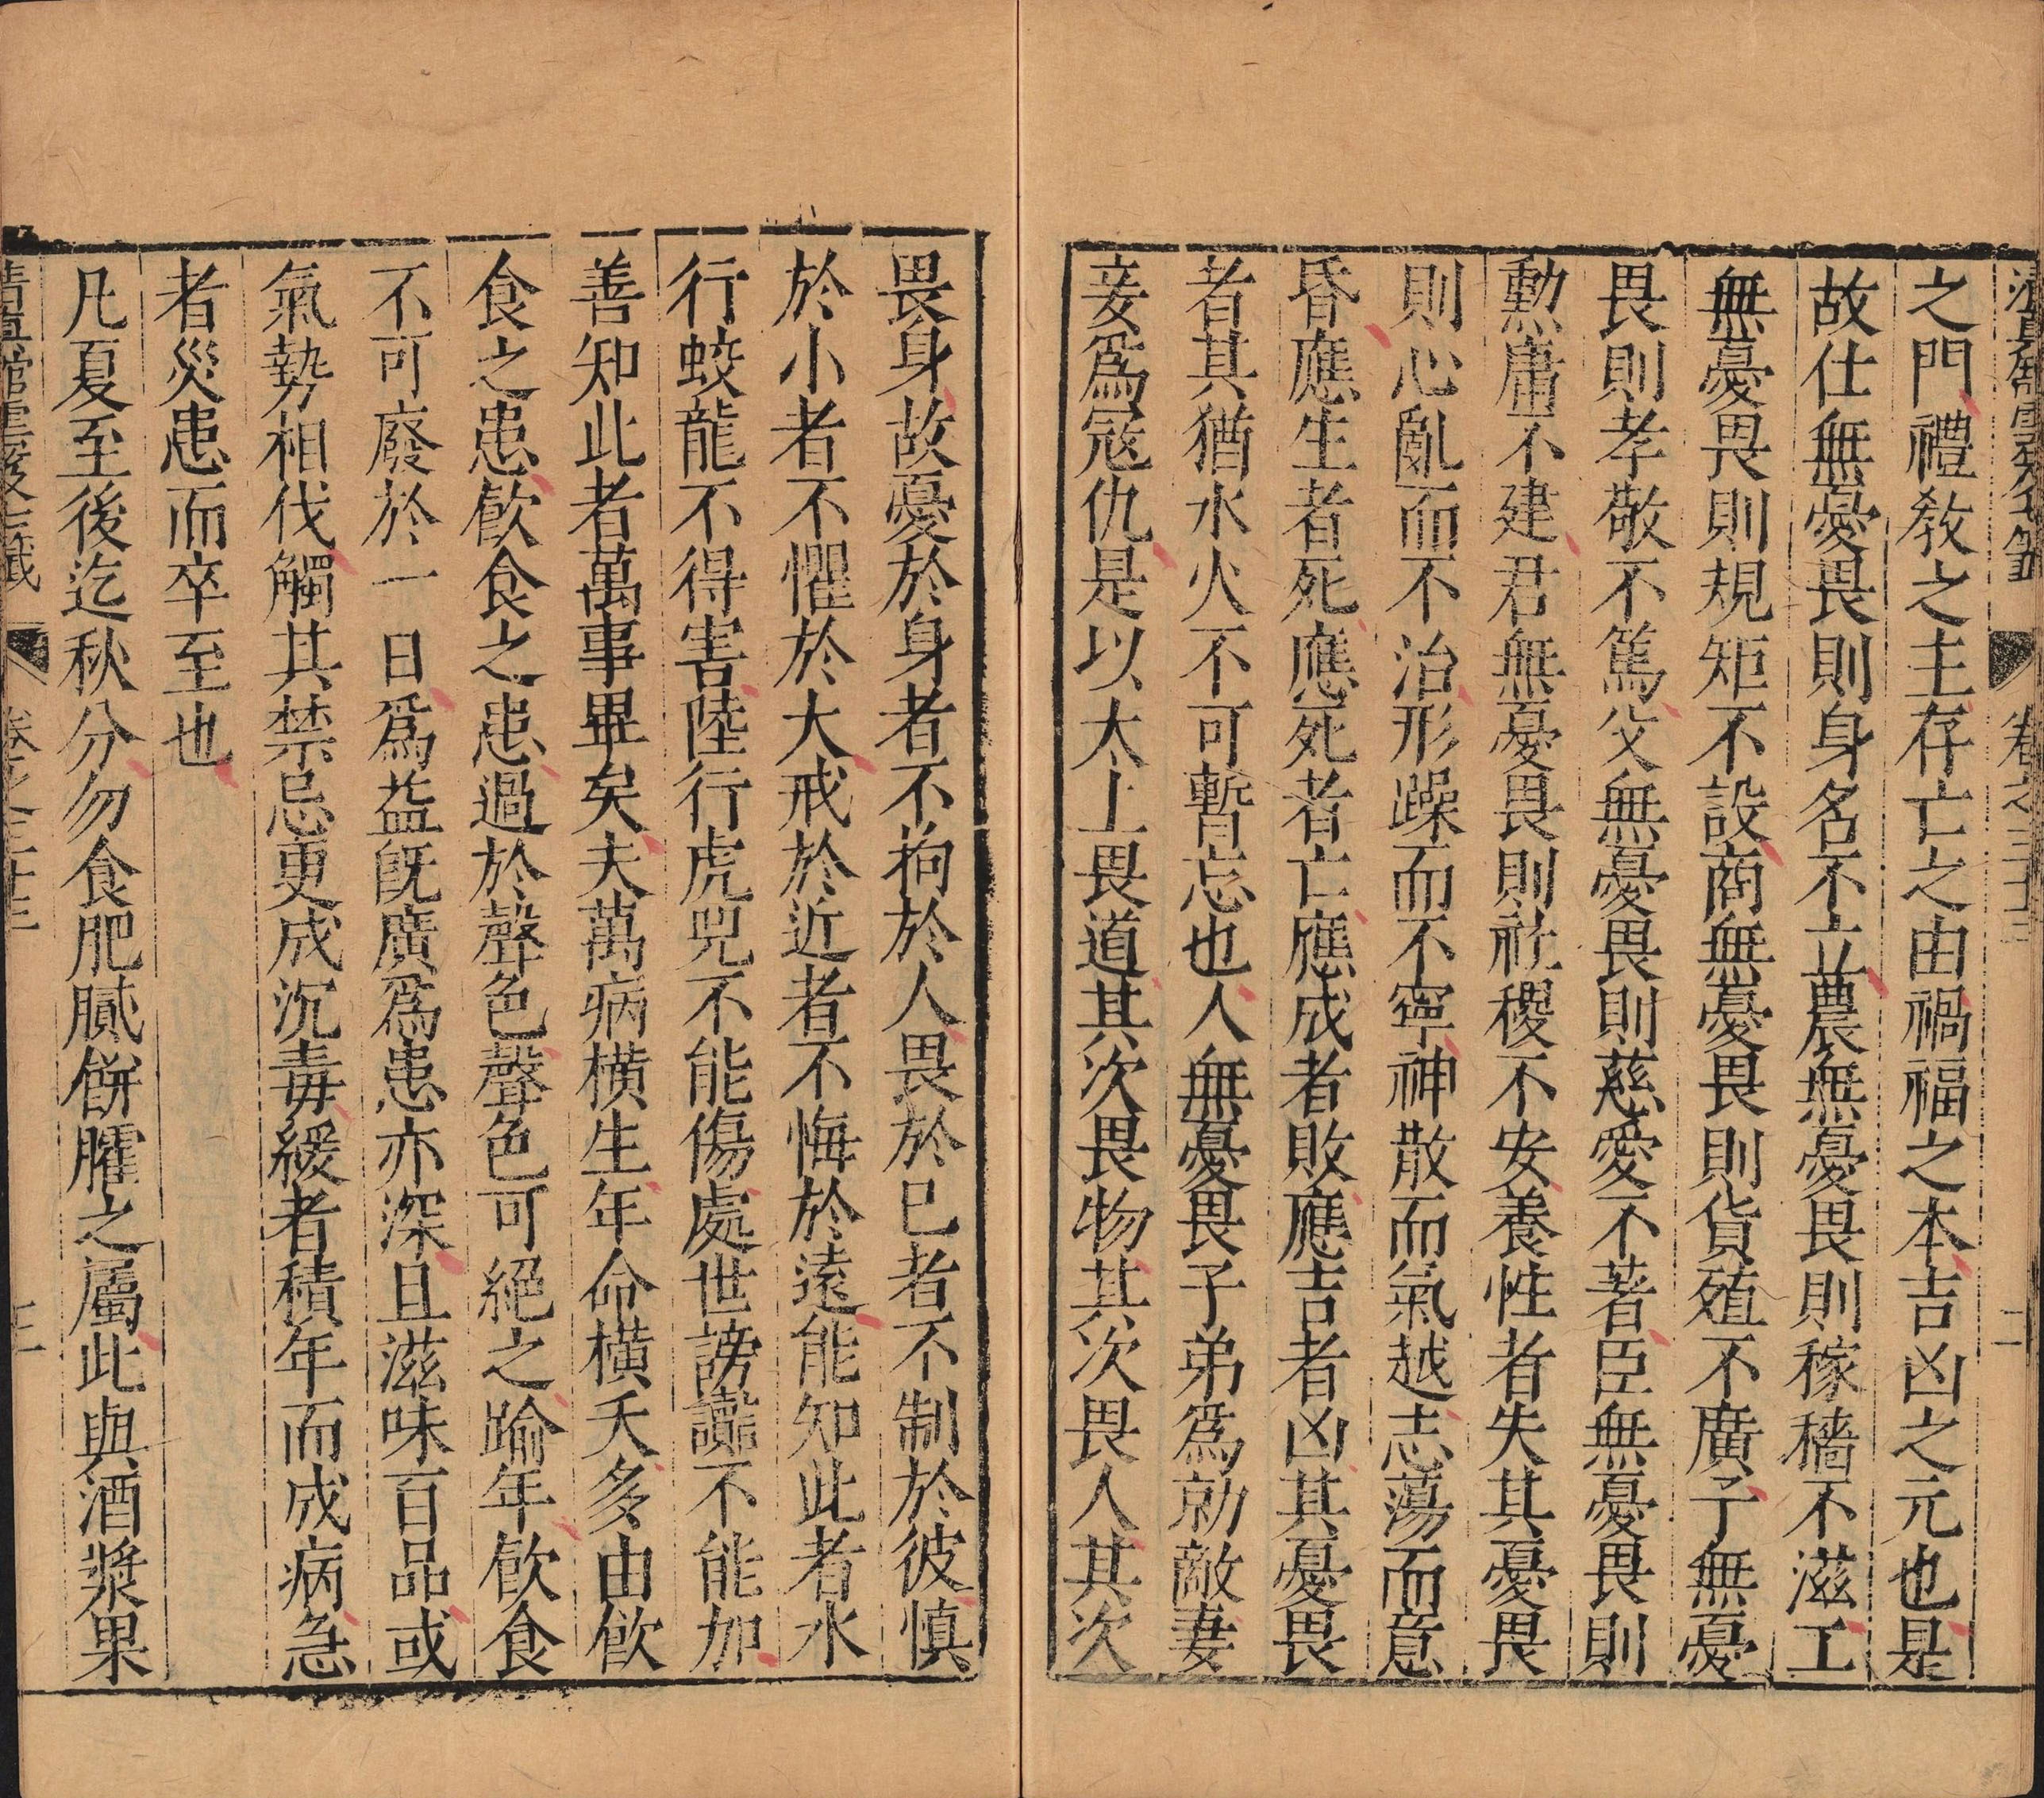 清真館雲笈七籤 卷之三十三 二
之門禮教之主存亡之由禍福之本吉凶之元也是
故仕無憂畏則身名不立農無憂畏則稼穡不滋工
無憂畏則規矩不設商無憂畏則貨殖不廣子無憂
畏則孝敬不篤父無憂畏則慈愛不著臣無憂畏則
勳庸不建君無憂畏則社稷不安養性者失其憂畏
則心亂而不治形躁而不寧神散而氣越志蕩而意
昏應生者死應死者亡應成者敗應吉者凶其憂畏
者其猶水火不可暫忘也人無憂畏子弟爲勍敵妻
妾爲寇仇是以太上畏道其次畏物其次畏人其次
畏身故憂於身者不拘於人畏於已者不制於彼慎
於小者不懼於大戒於近者不悔於遠能知此者水
行蛟龍不得害陸行虎兕不能傷處世謗讟不能加
善知此者萬事畢矣夫萬病橫生年命橫夭多由飲
食之患飲食之患過於聲色聲色可絕之踰年飲食
不可廢於一日爲益既廣爲患亦深且滋味百品或
氣勢相伐觸其禁忌更成沉毒緩者積年而成病急
者災患而卒至也
凡夏至後迄秋分勿食肥膩餅臛之屬此與酒漿果
清真館雲笈七籤 卷之三十三 二